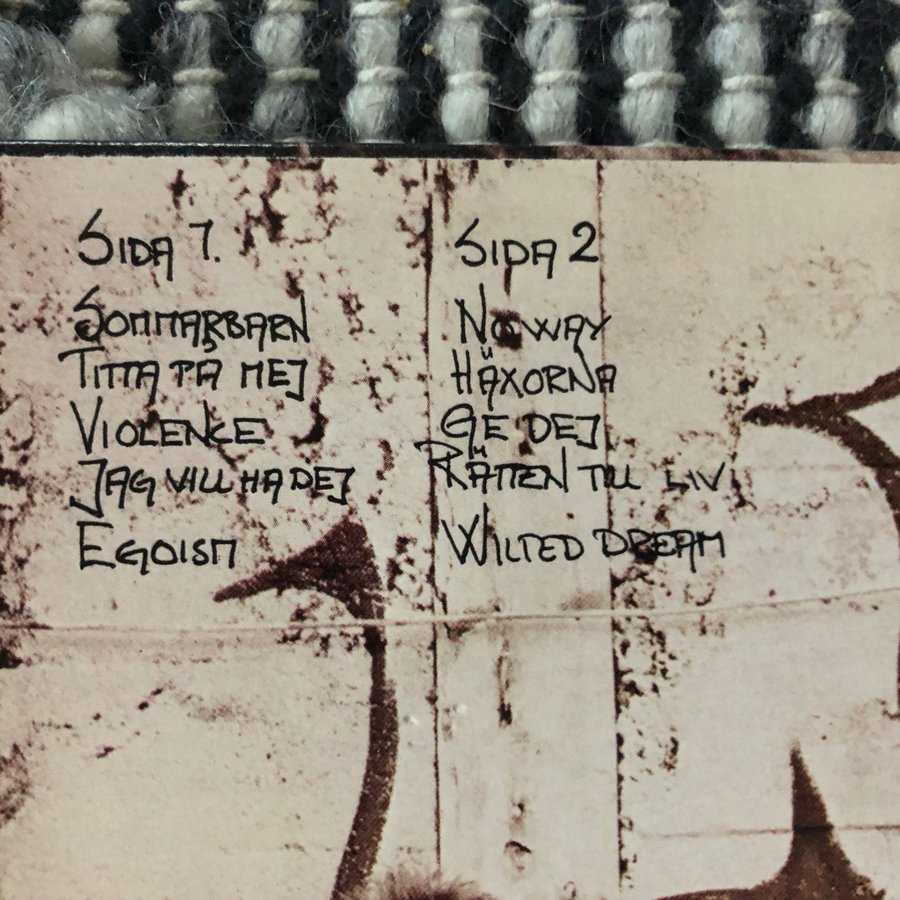 SIDA 1.
SOMMARBARN
TITTA PÅ MEJ
VIOLENCE
JAG VILL HA DEJ
EGOISM
SIDA 2
NO WAY
HÄXORNA
GE DEJ
RÄTTEN TILL LIV
WILTED DREAM